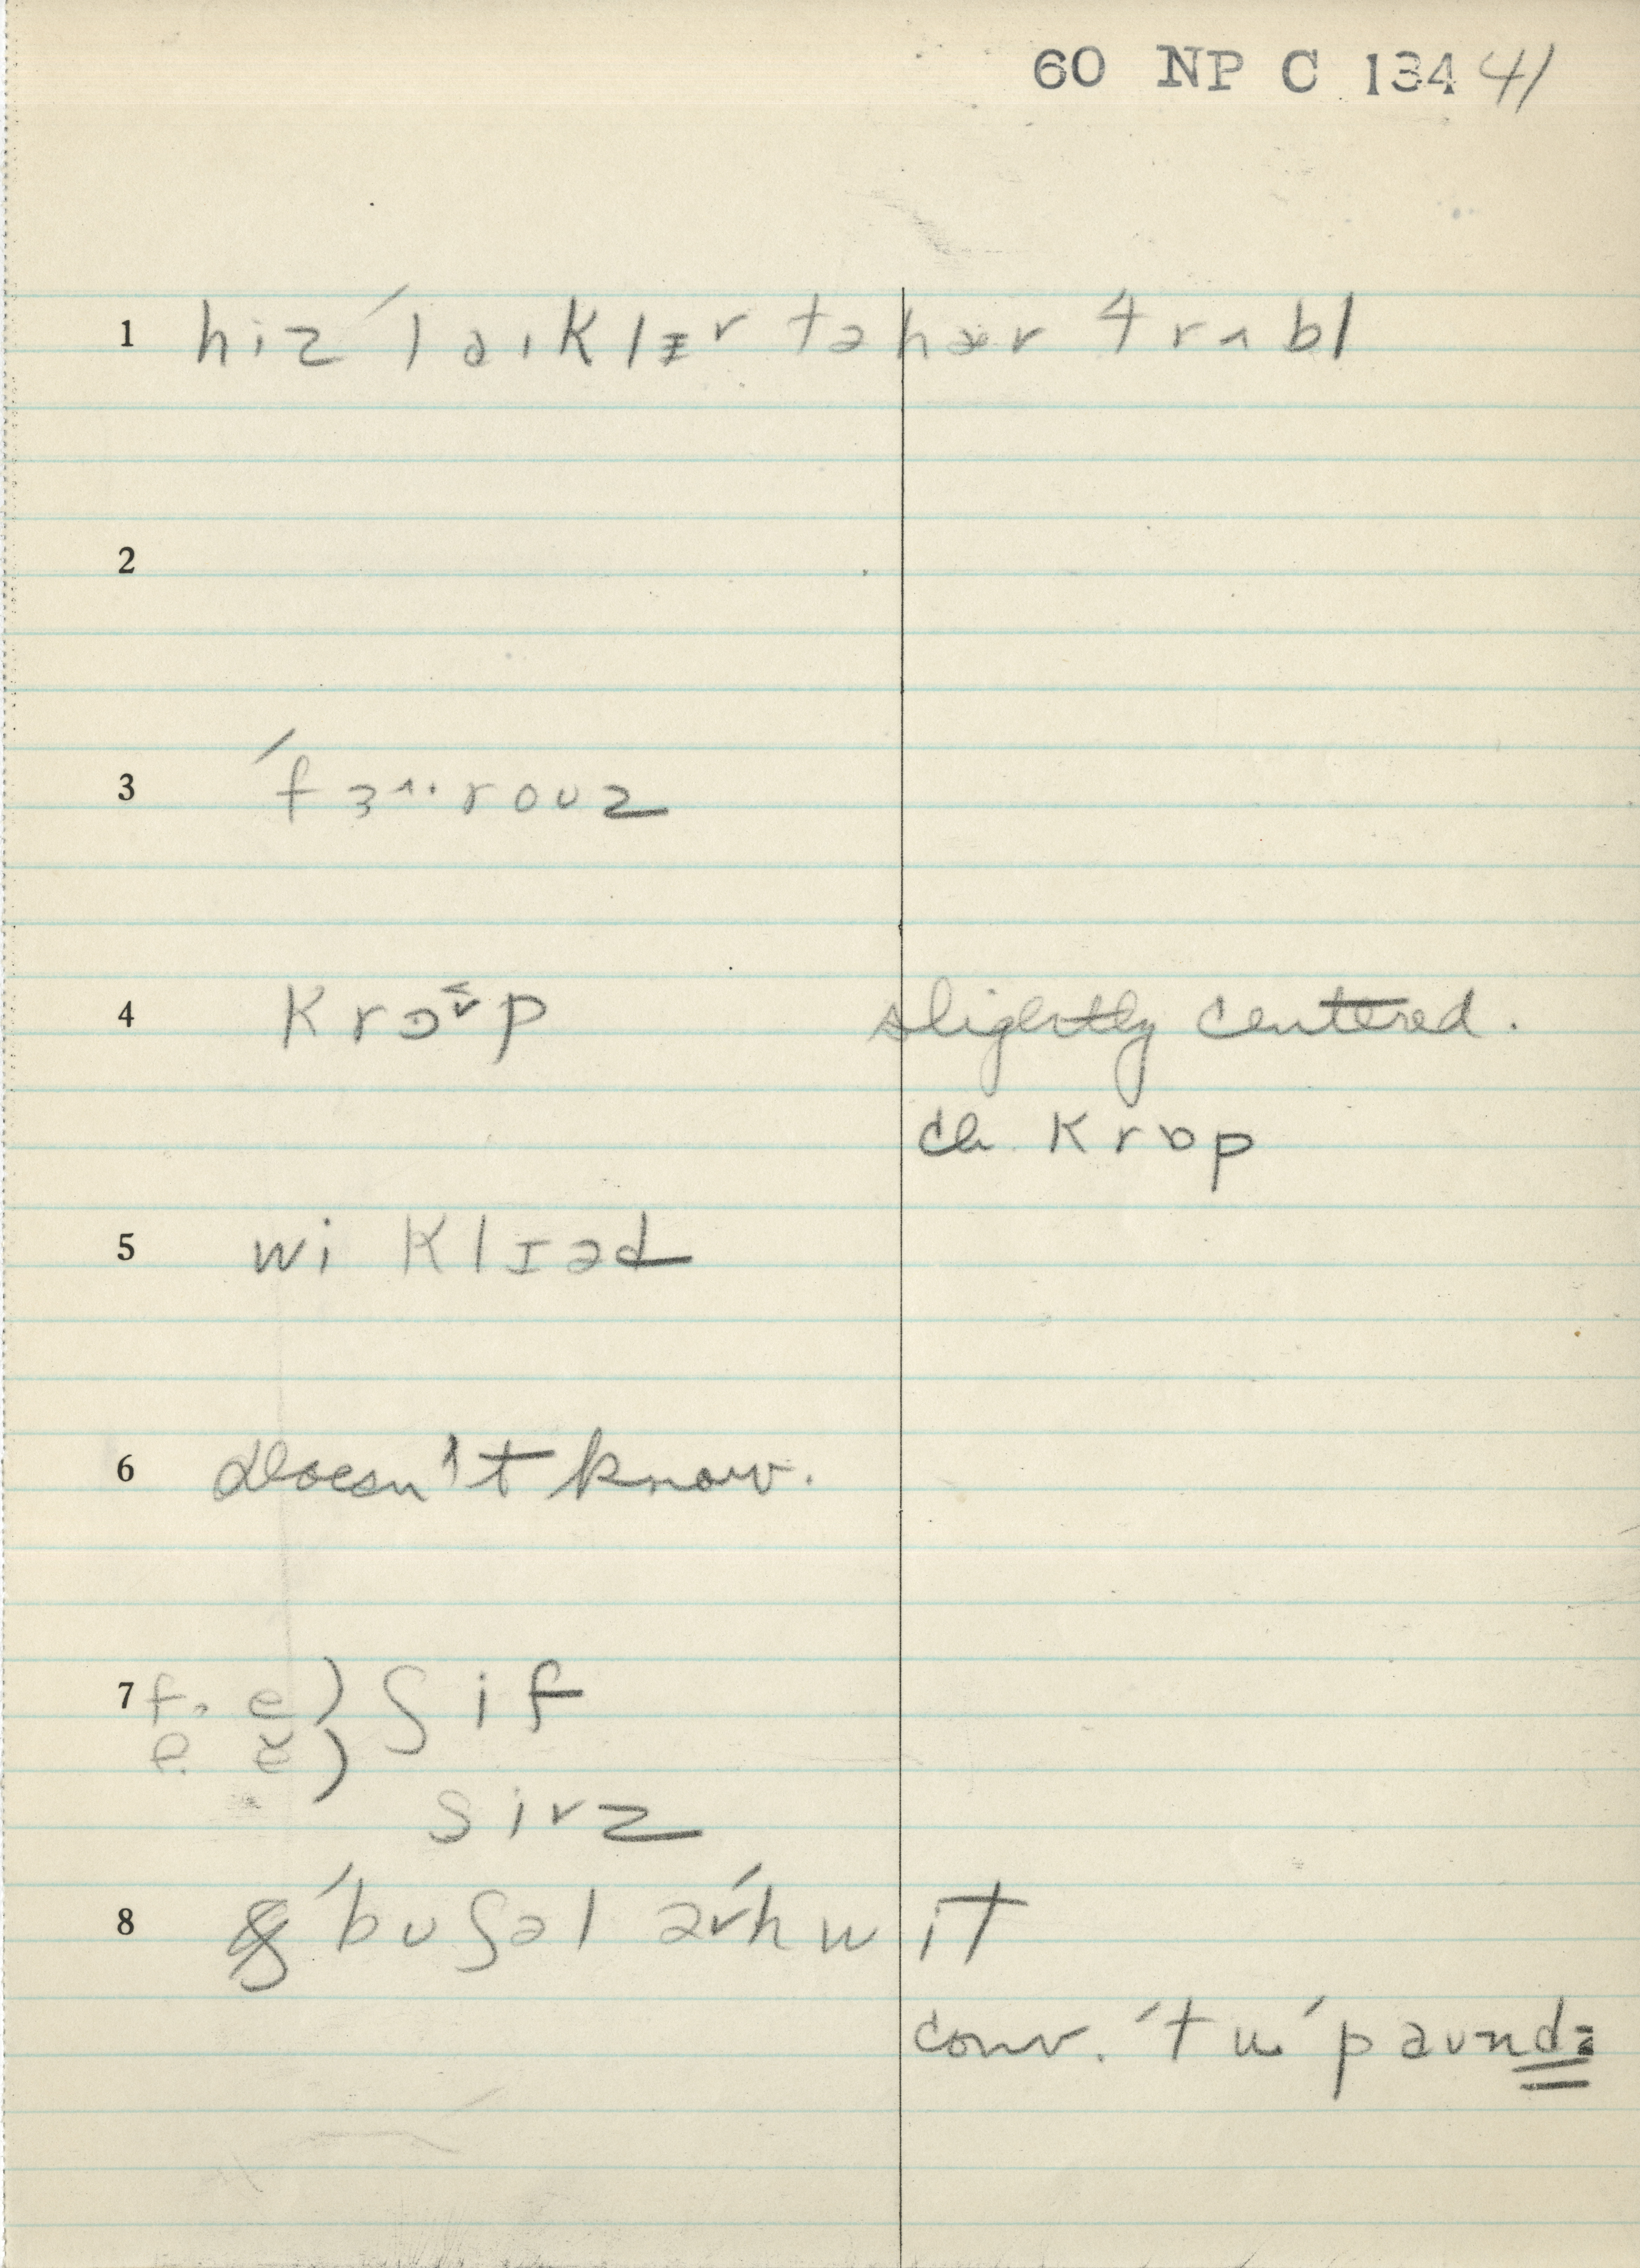 60 NP C 134 41
1 hiz ´laɪklɪər təhær trʌbl
2
3 ´fɜ^..rouz
4 krɔp slightly centered.
ch krɒp
5 wi klɪəd
6 doesn't know.
7 f. e) ʃif
f. ĕ)
sirz
8 ´buʃəl ər´hwit
conv. ´tu ´paundz